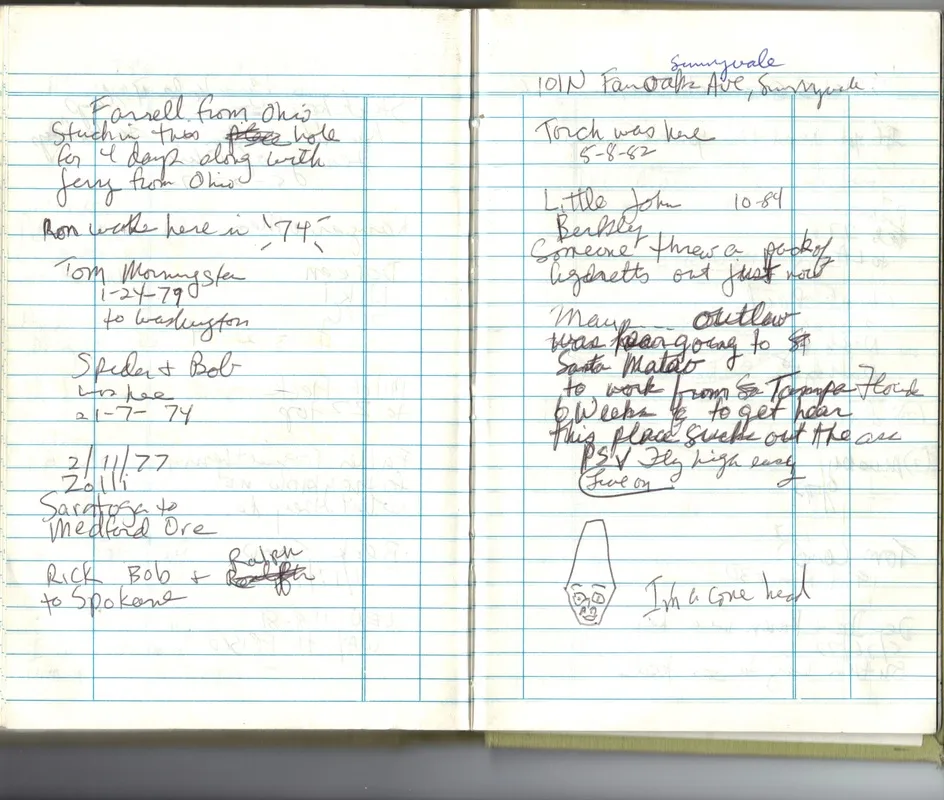 Farrell from Ohio
Stuck in this hole
for 4 days along with
Jerry from Ohio
Ron was here in '74
Tom Morningstar
1-24-79
to Washington
Spider & Bob
was here
21-7-74
2/11/77
Saratoga to
Medford Ore
Rick Bob + Ralph
to Spokane
Sunnyvale
101 N Fairoaks Ave, Sunnyvale
Torch was here
5-8-82
Little John 10-84
Berkley
Someone threw a pack of
cigaretts out just now
outlaw
was going to
Santa Mataó
to work from Tampa Floida
6 Weeks to get hear
this place sucks out the ass
PSV Fly high easy
Live on
Im a cone head